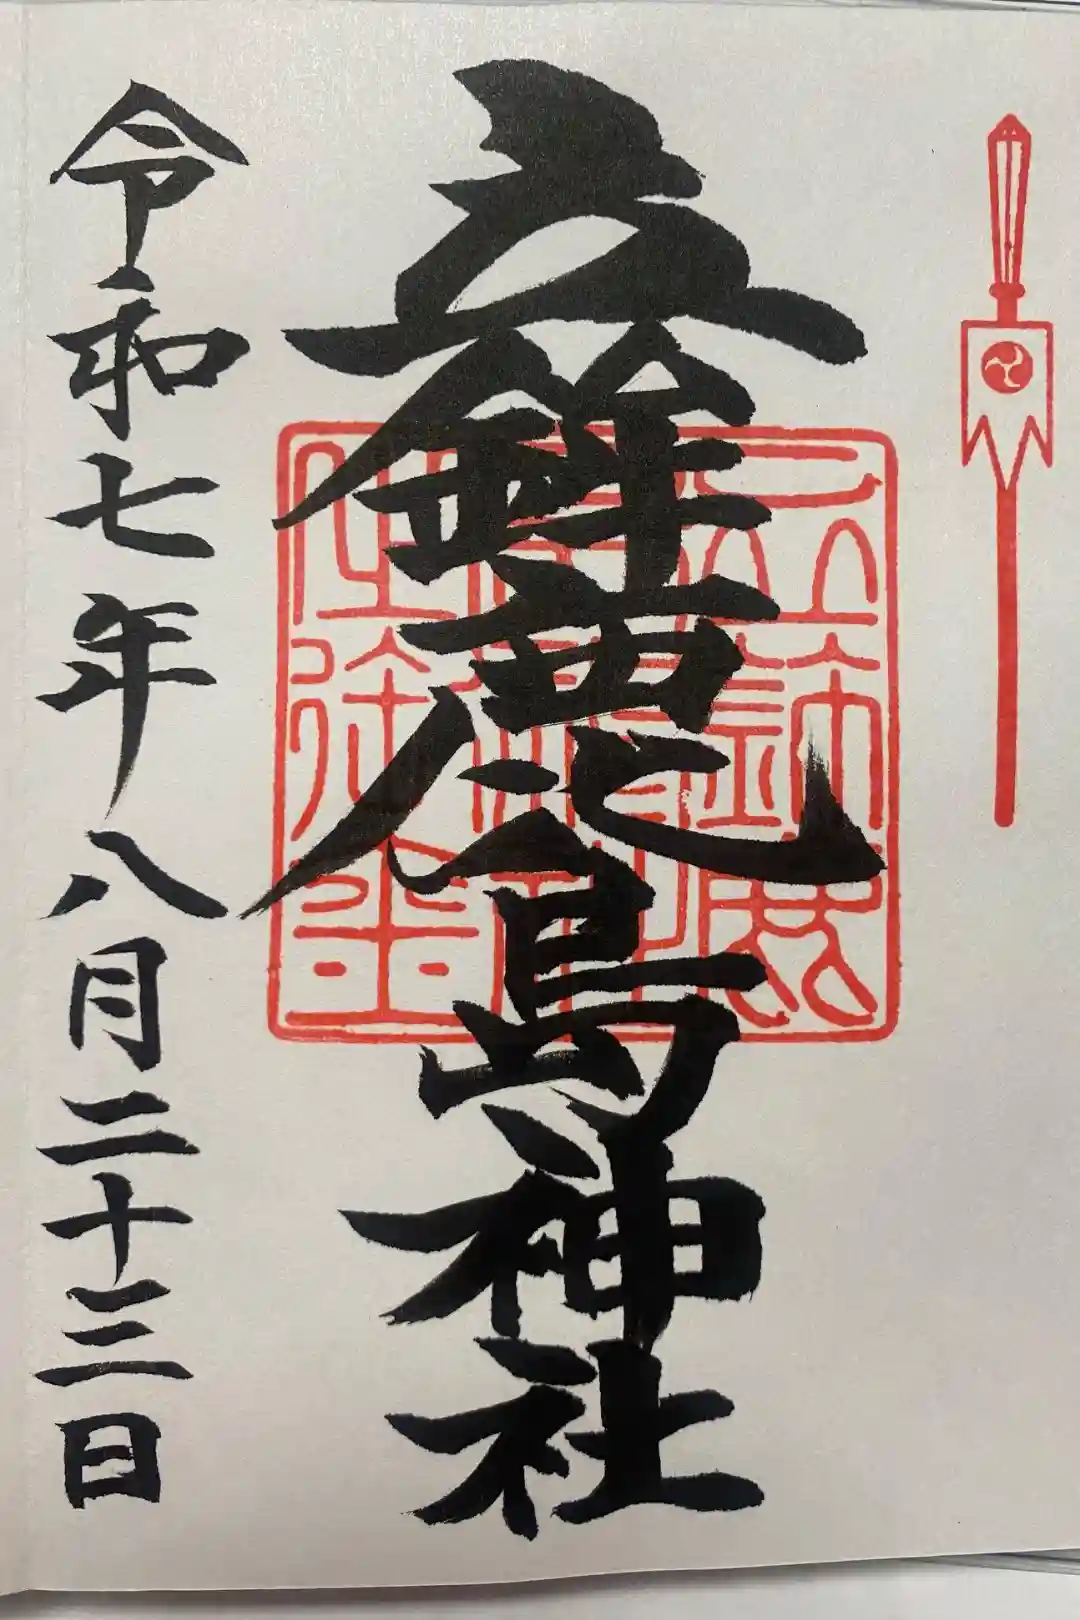 立鉾鹿島神社
令和七年八月二十三日